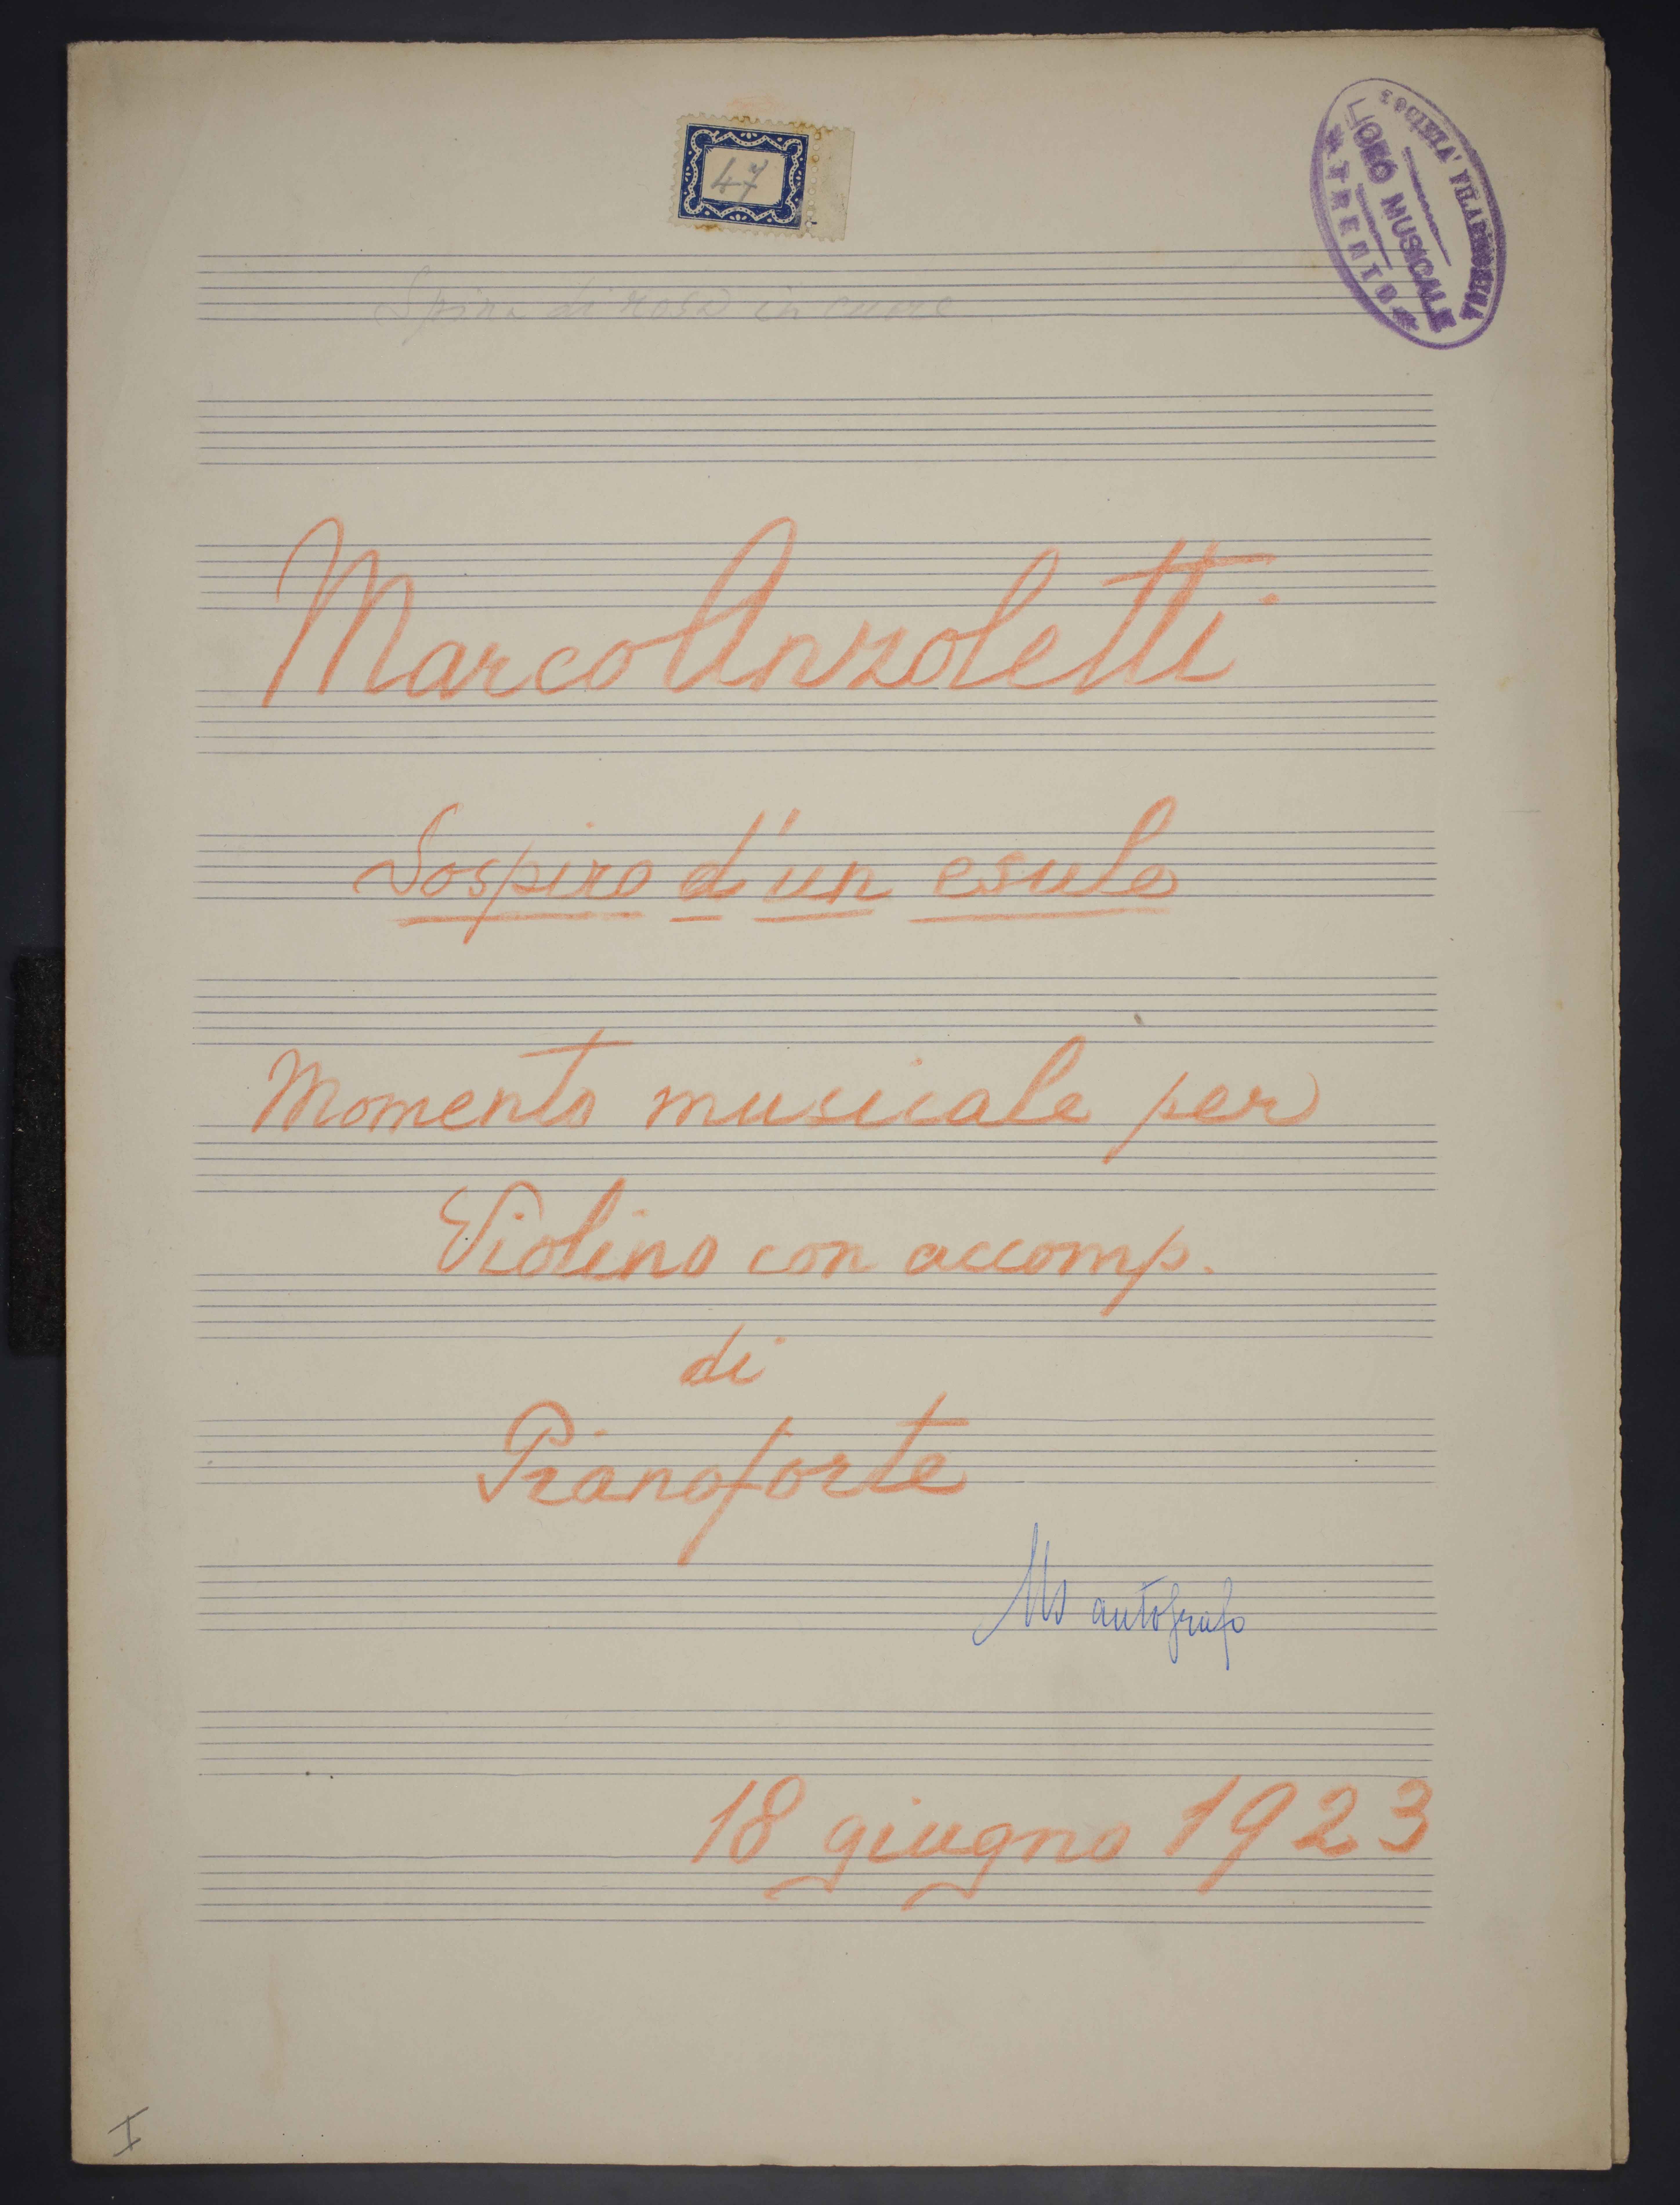 47
SOCIETÀ FILARMONICA
LICEO MUSICALE
TRENTO
Spina di rosa in cuore
Marco Anzoletti
Sospiro d'un esule
Momento musicale per
Violino con accomp.
di
Pianoforte
Ms autografo
18 giugno 1923
I